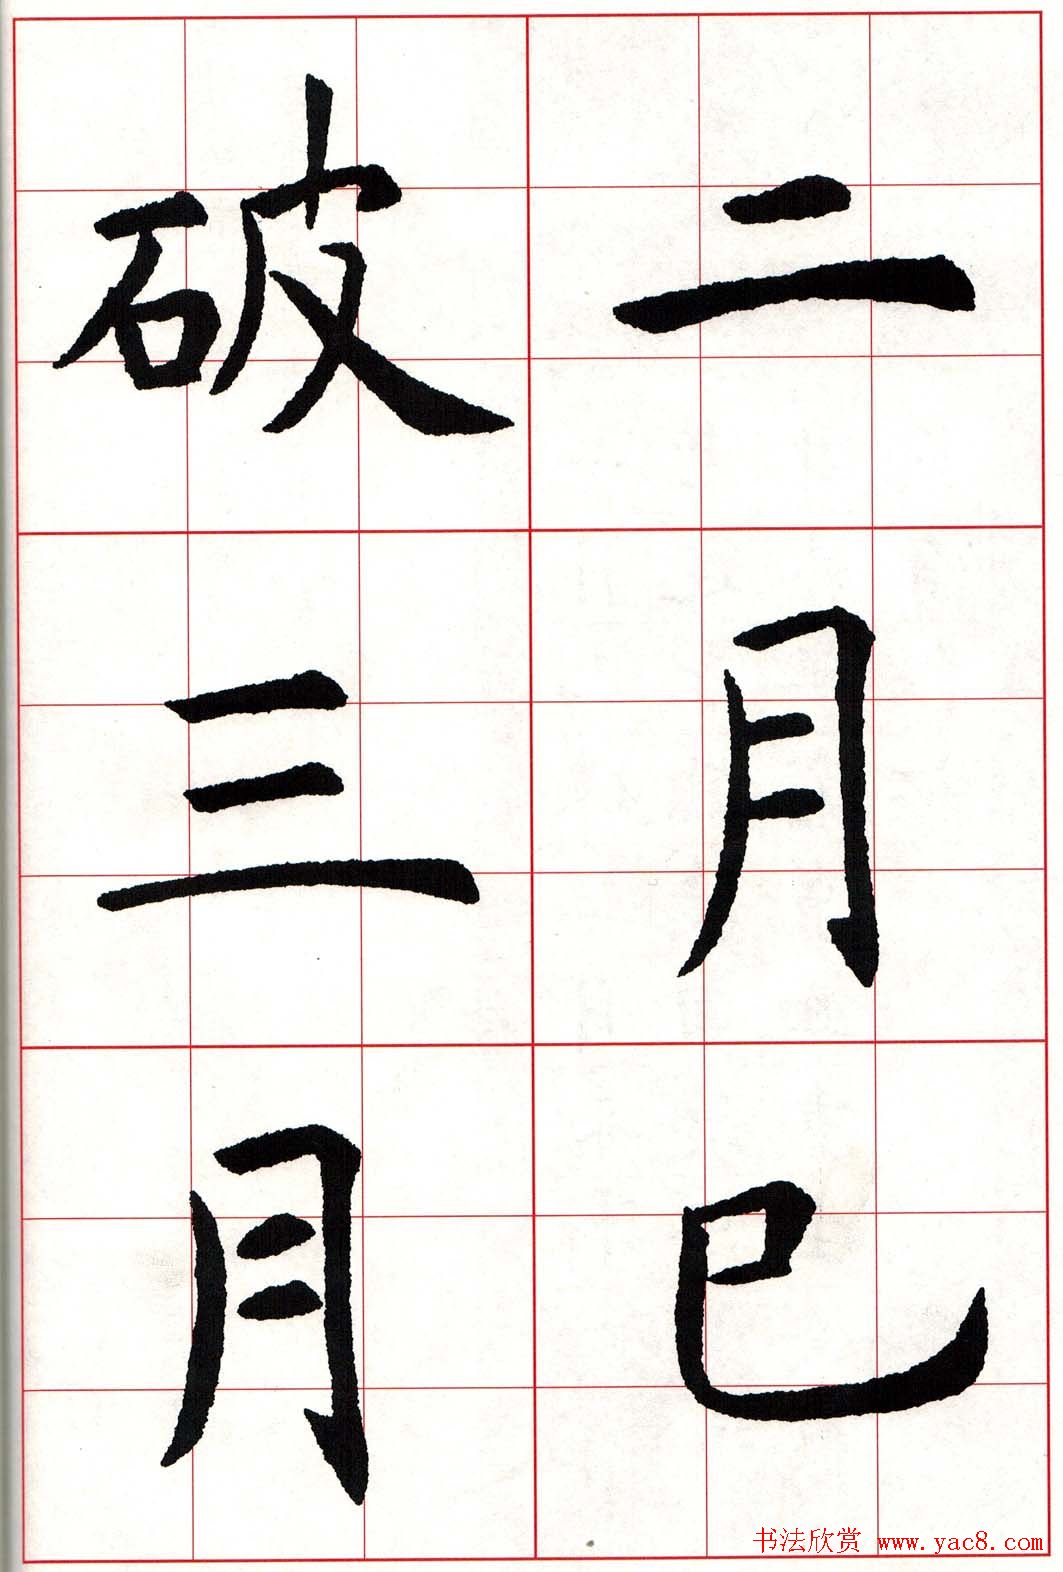 二月巳
破三月
书法欣赏 www.yac8.com